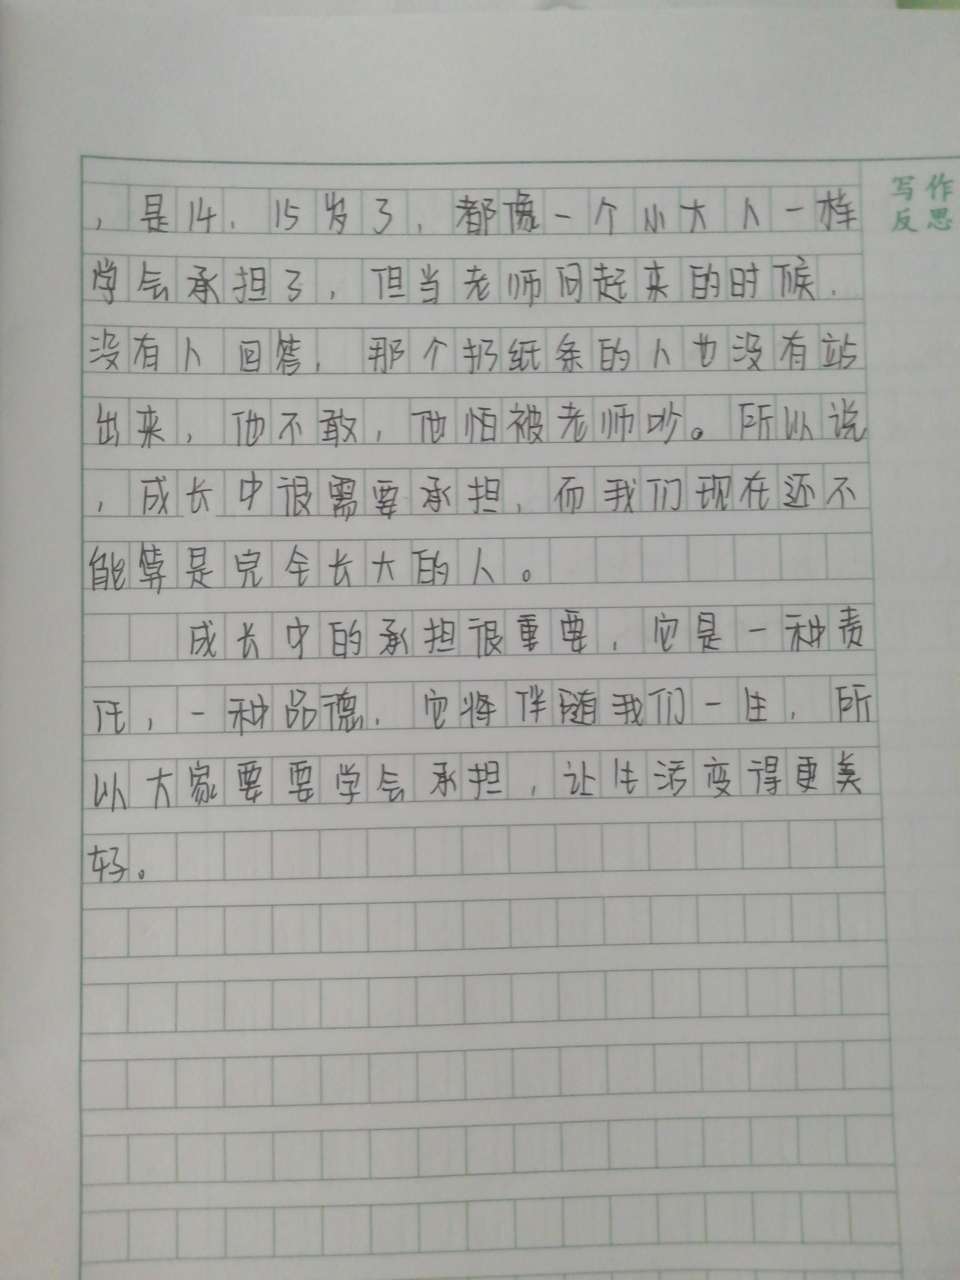 ，是14、15岁了，都像一个小大人一样
学会承担了，但当老师问起来的时候，
没有人回答，那个扔纸条的人也没有站
出来，他不敢，他怕被老师吵。所以说
，成长中很需要承担，而我们现在还不
能算是完全长大的人。
成长中的承担很重要，它是一种责
任，一种品德，它将伴随我们一生，所
以大家要要学会承担，让生活变得更美
好。
写作
反思